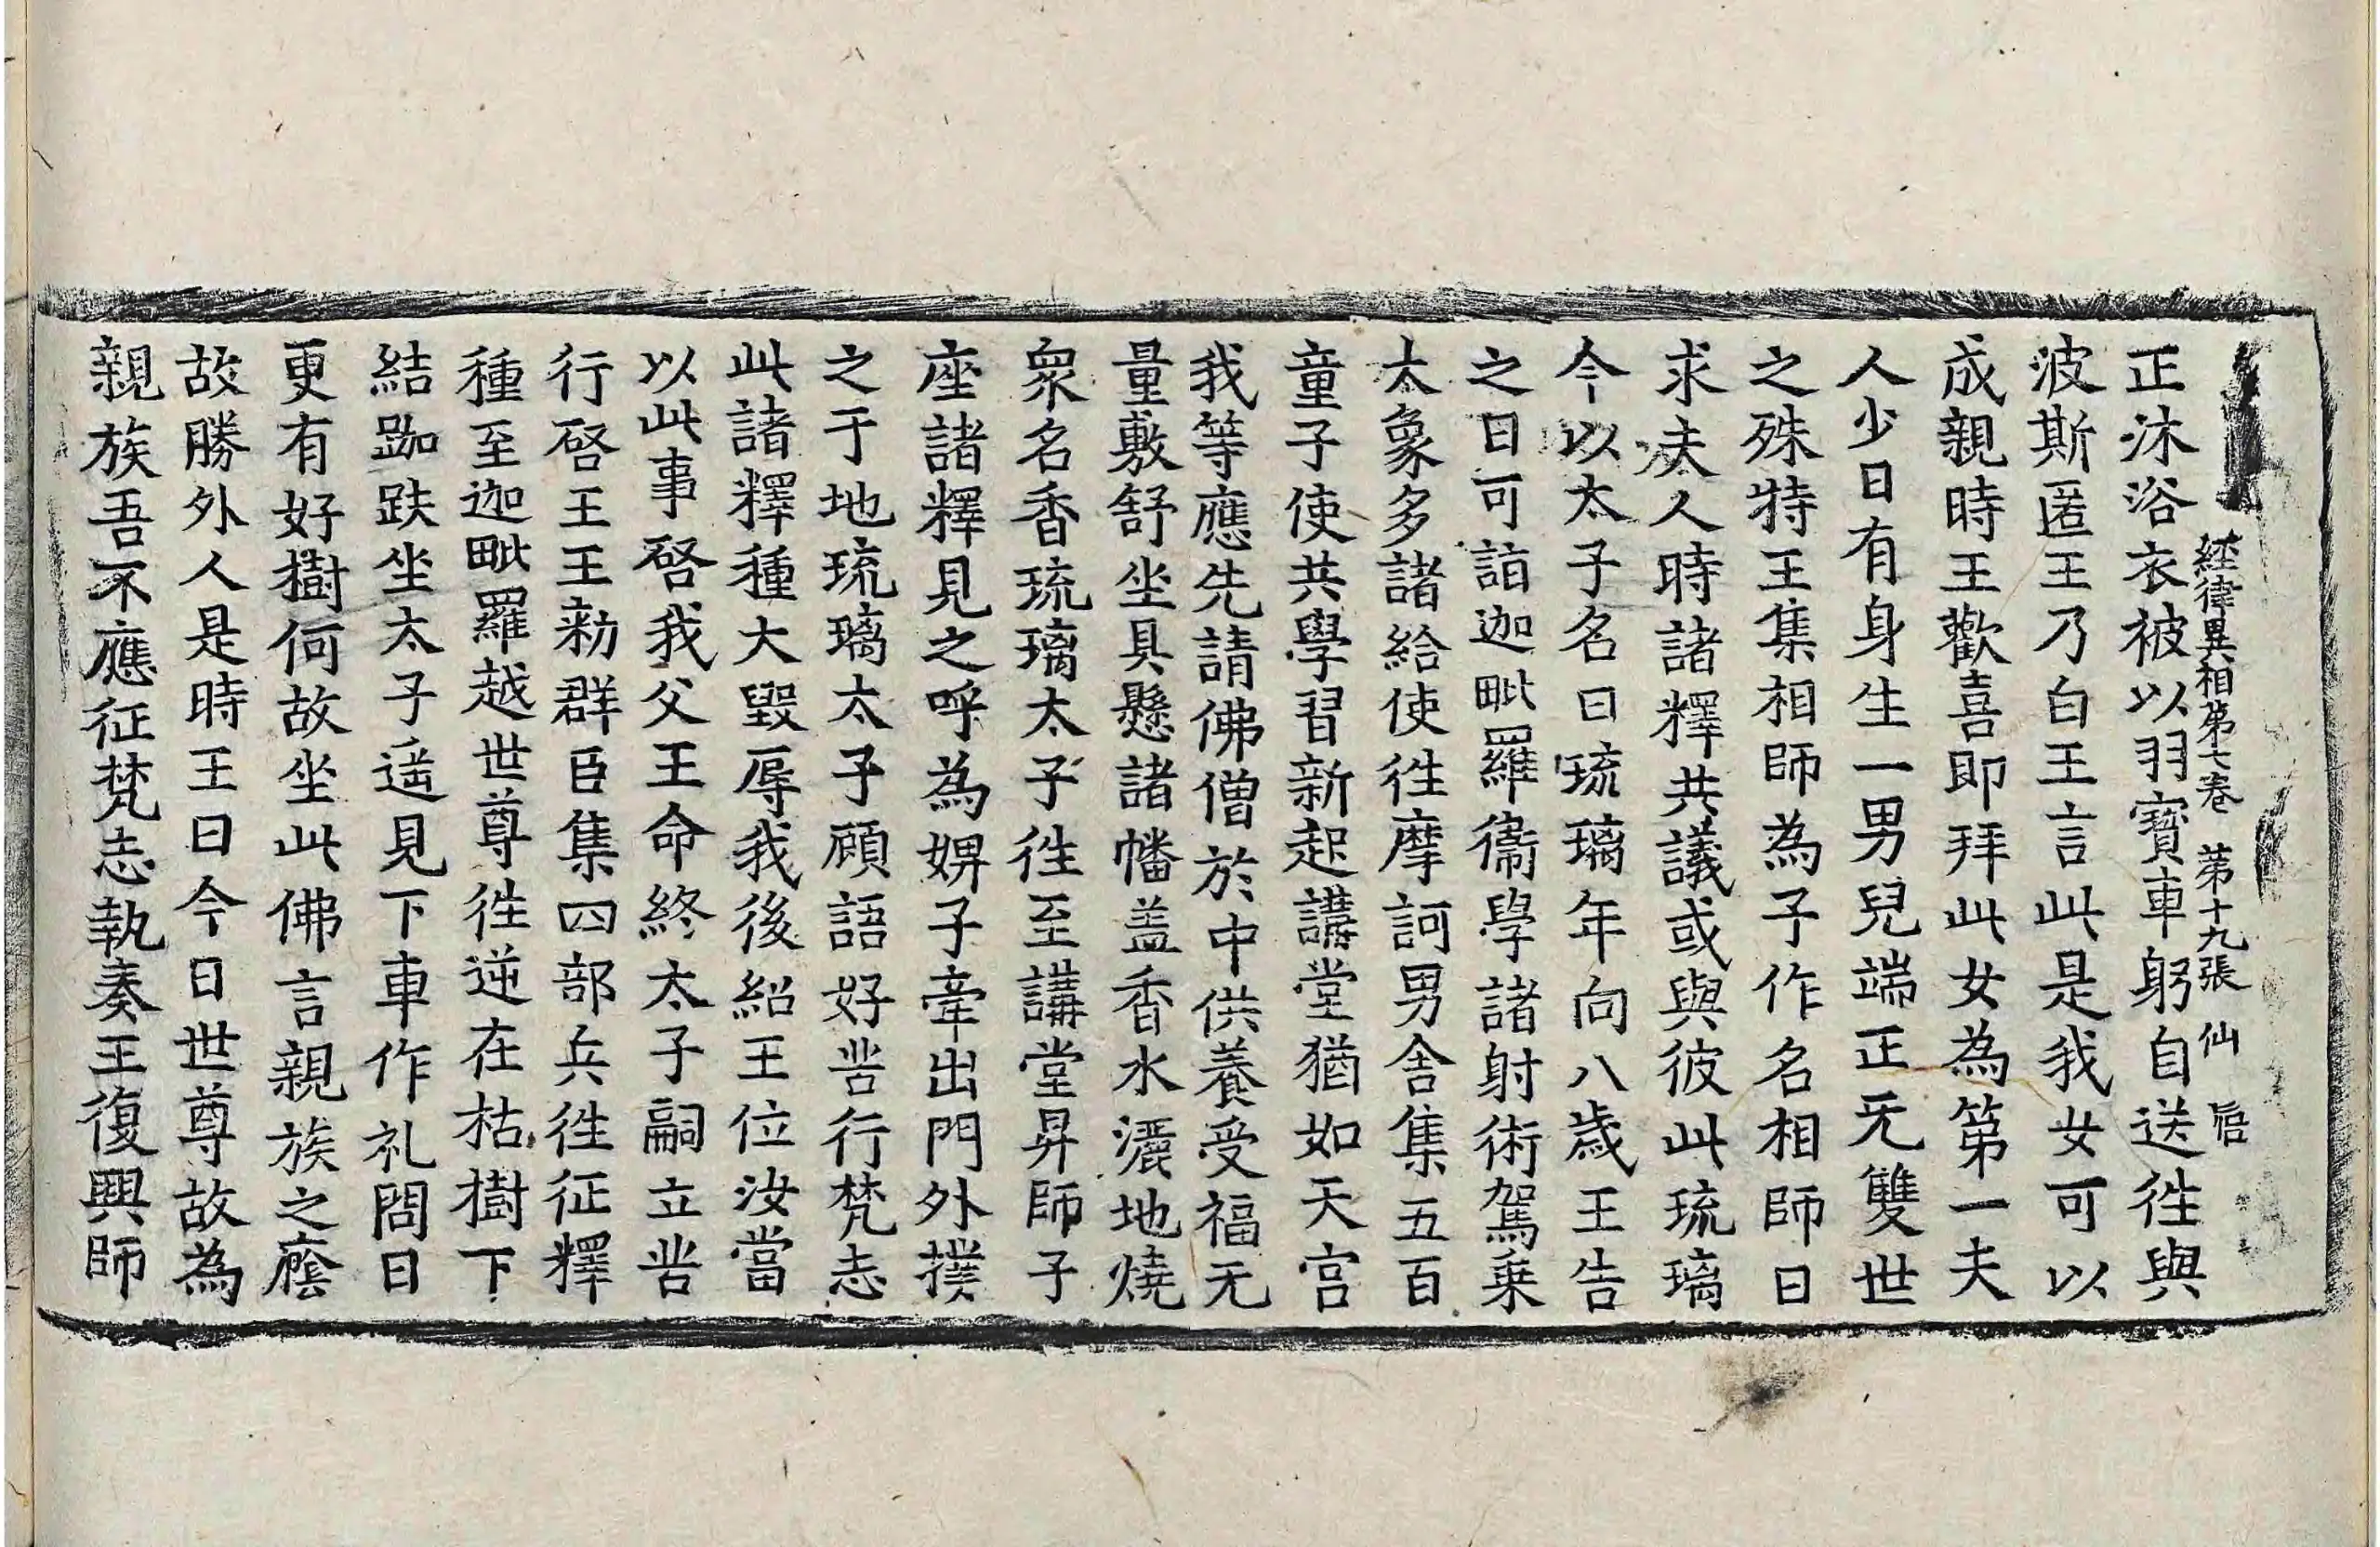 經律異相第七卷 第十九張 仙
正沐浴衣被以羽寶車躬自送徃與
波斯匿王乃白王言此是我女可以
成親時王歡喜即拜此女為第一夫
人少日有身生一男兒端正无雙世
之殊特王集相師為子作名相師曰
求夫人時諸釋共議或與彼此琉璃
今以太子名曰琉璃年向八歲王告
之曰可詣迦毗羅衞學諸射術駕乗
大象多諸給使徃摩訶男舍集五百
童子使共學習新起講堂猶如天宮
我等應先請佛僧於中供養受福无
量敷舒坐具懸諸幡盖香水灑地燒
衆名香琉璃太子徃至講堂昇師子
座諸釋見之呼為婢子牽出門外撲
之于地琉璃太子顧語好苦行梵志
此諸釋種大毀辱我後紹王位汝當
以此事啓我父王命終太子嗣立苦
行啓王王勑群臣集四部兵徃征釋
種至迦毗羅越世尊徃逆在枯樹下
結跏趺坐太子遥見下車作礼問曰
更有好樹何故坐此佛言親族之廕
故勝外人是時王曰今日世尊故為
親族吾不應征梵志執奏王復興師